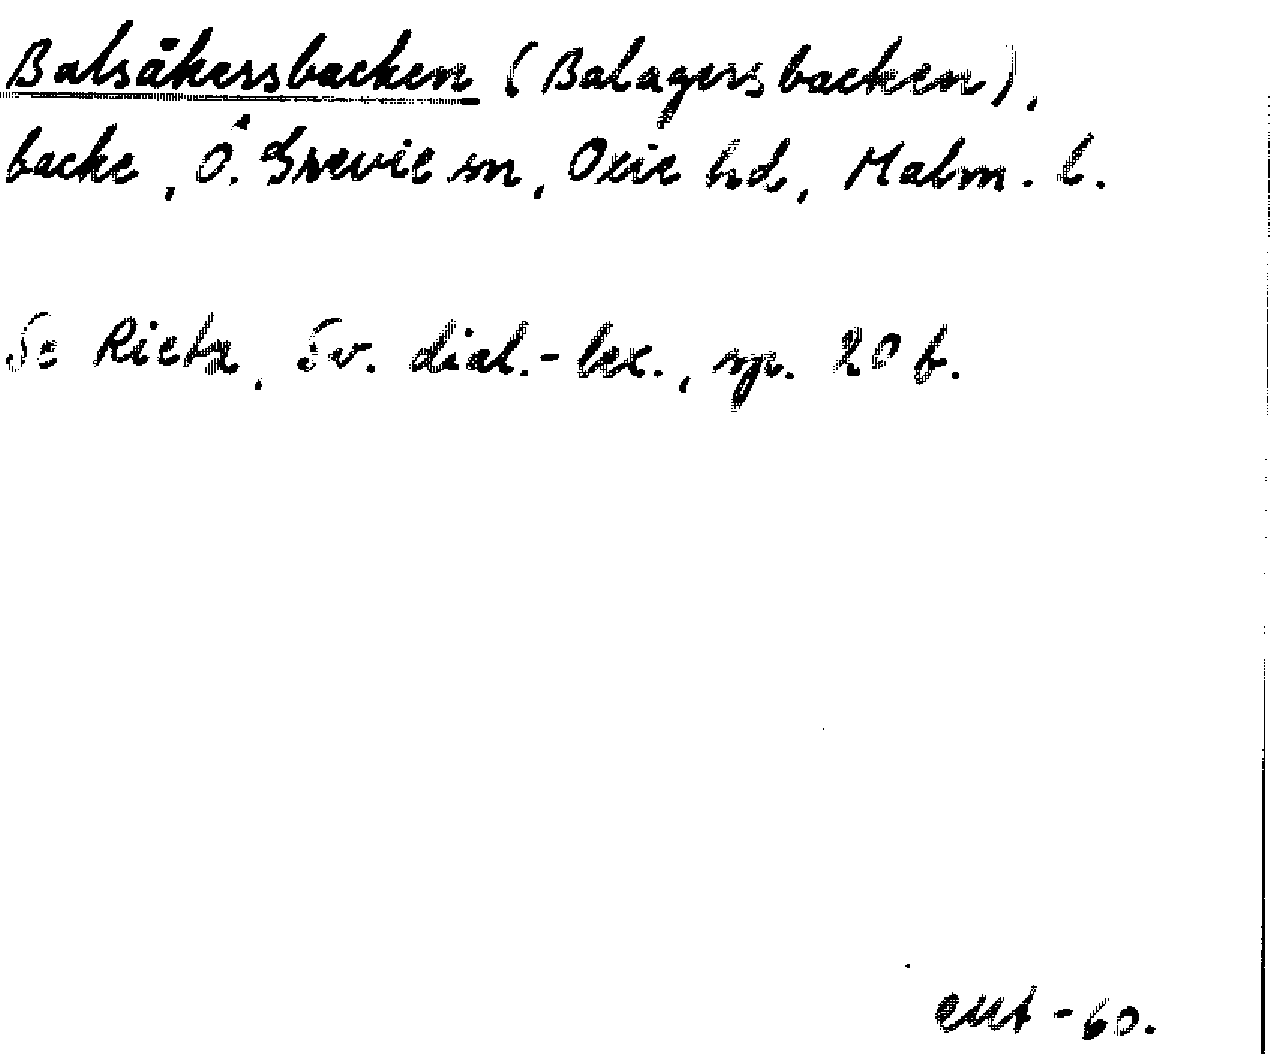 Balsåkersbacken (Balagersbacken),
backe, Ö. Grevie sn, Oxie hd, Malm. l.
Se Rietz, Sv. dial.-lex., sp. 20 b.
-60.